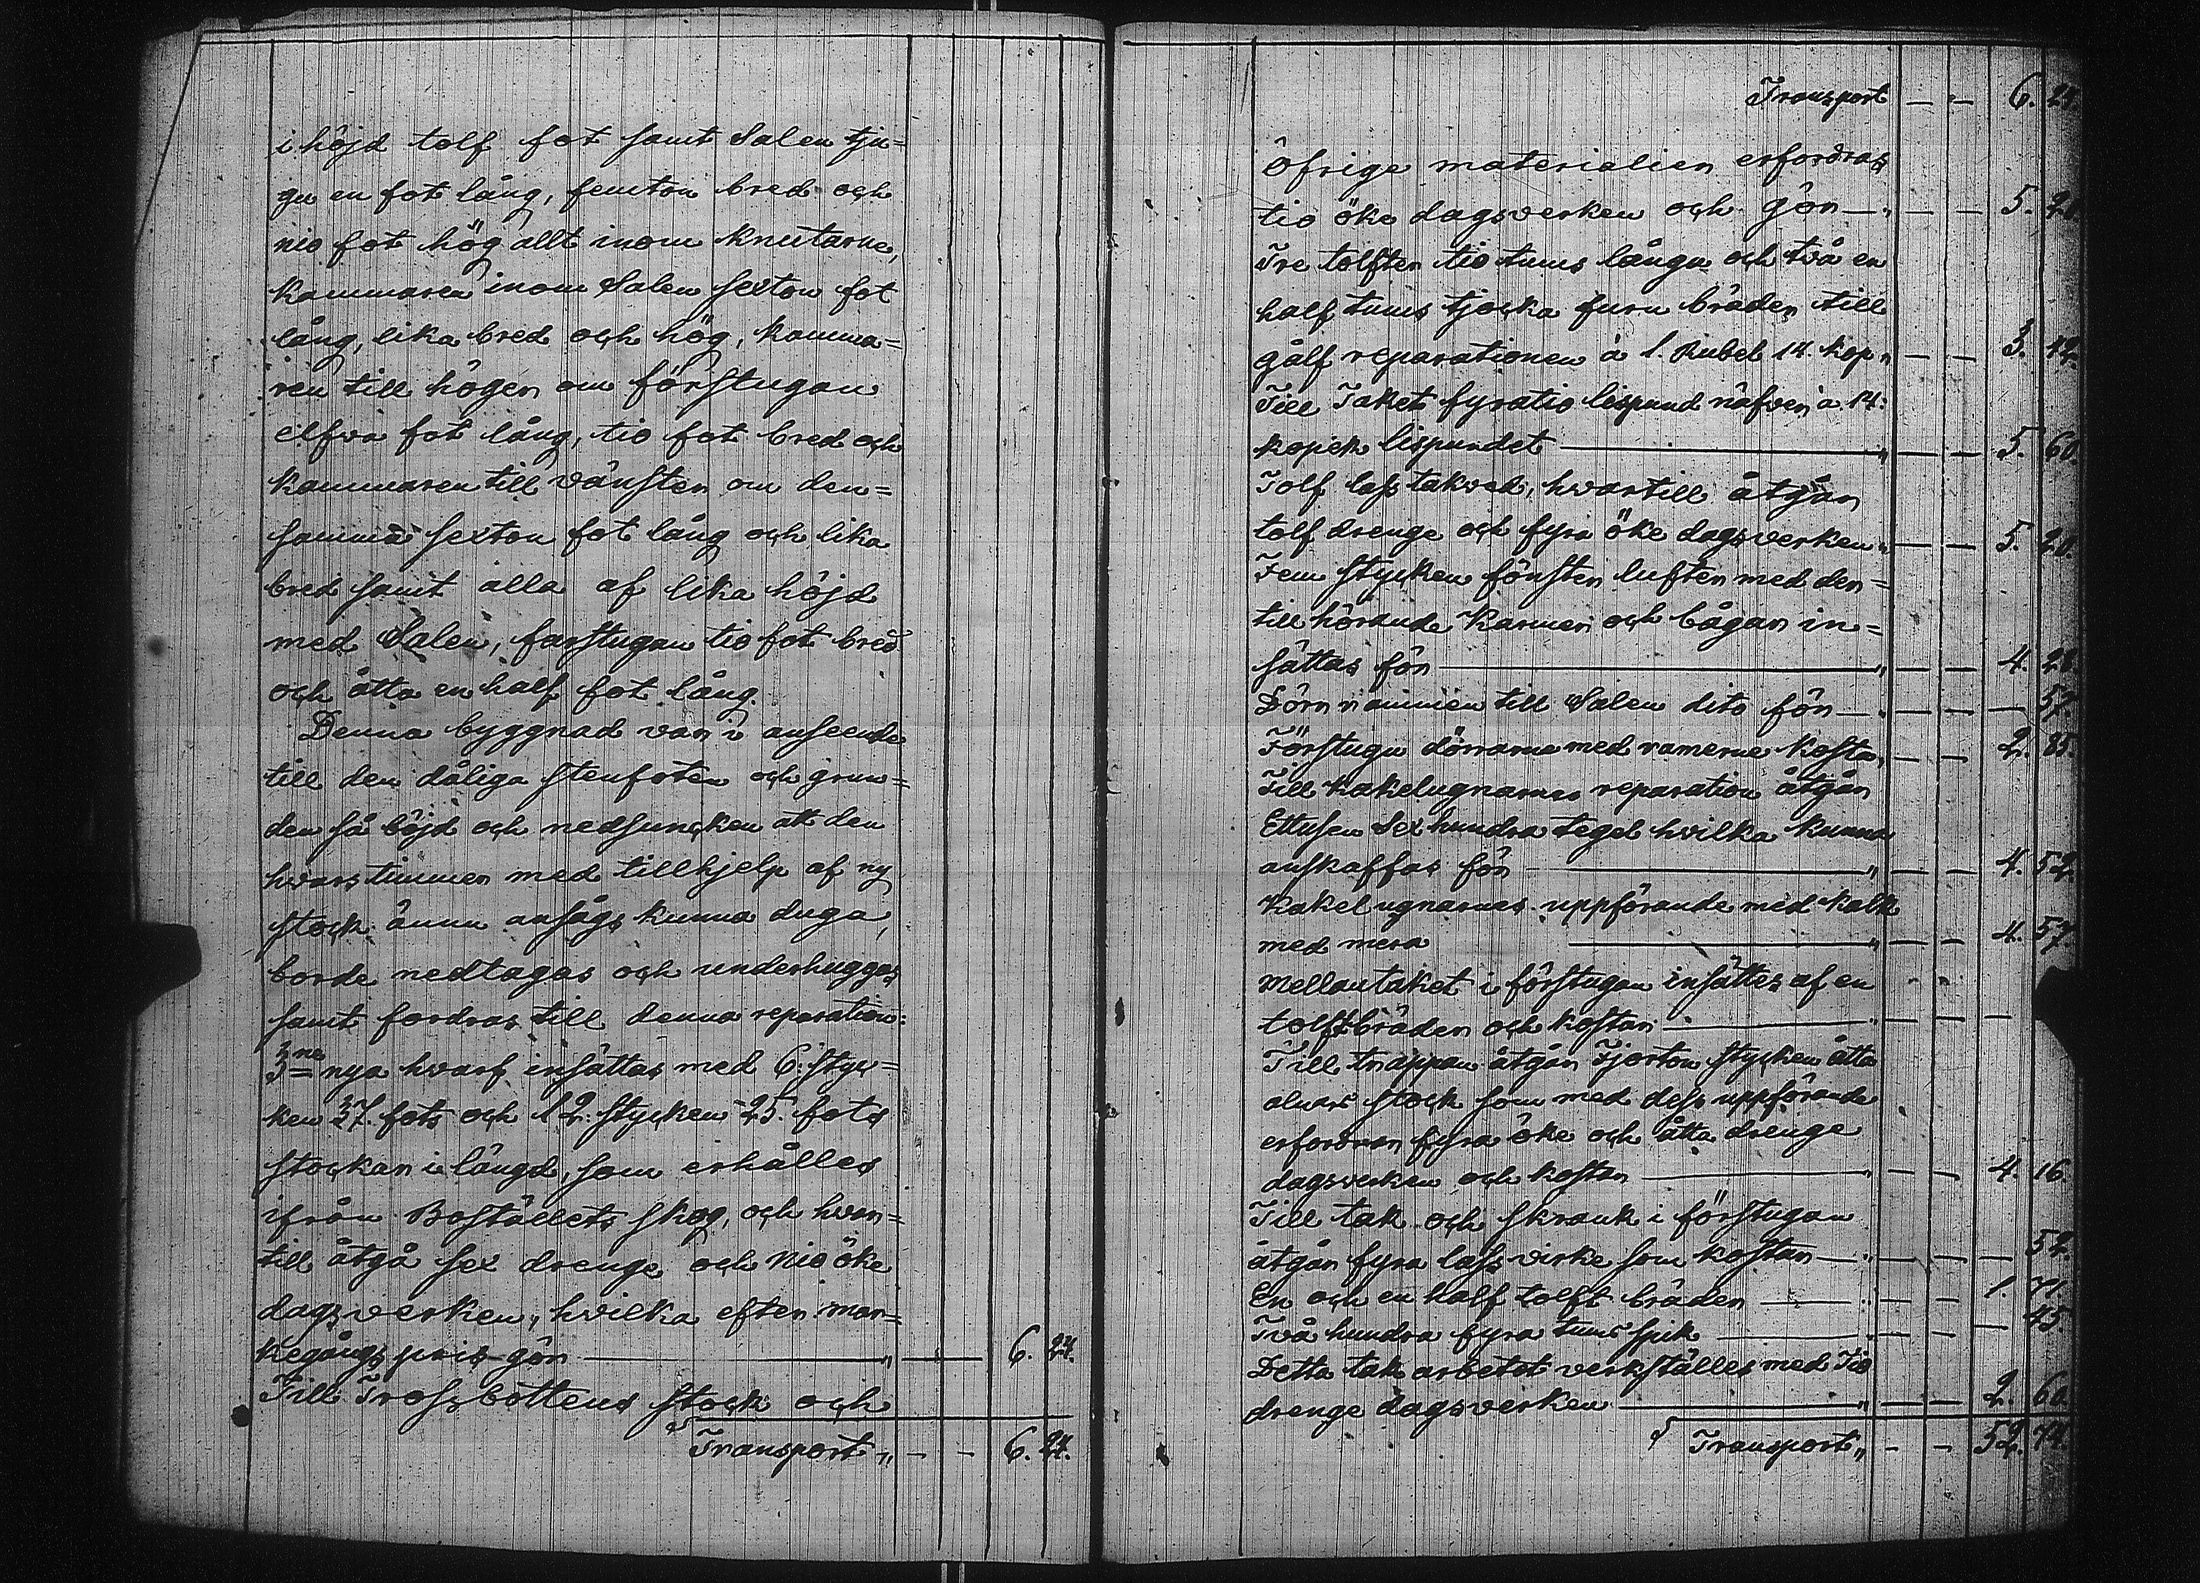 i höjd tolf fot samt Salen tju=
gu en fot lång, femton bred och
nio fot hög allt inom knutarne,
Kammaren inom Salen sexton fot
lång, lika bred och hög, kamma=
ren till höger om förstugan
elfva fot lång, tio fot bred och
Kammaren till vänster om den=
samma sexton fot lång och lika
bred samt alla af lika höjd
med Salen, farstugan tio fot bred
och åtta en half fot lång.
Denna byggnad var i anseende
till den dåliga stenfoten och grun=
den så böjd och nedsuncken att den
hvars timmer med tillhjelp af ny
stock ännu ansågs kunna duga,
borde nedtagas och underhuggas
samt fordras till denna reparation:
3ne nya hvarf insättas med 6. styc=
ken 37. fots och 12. stycken 25. fots
stockar i längd, som erhålles
ifrån Boställets skog, och hvar=
till åtgå sex drenge och nio öke
dagsverken, hvilka efter mar=
kegångs pris gör — " — 6. 24.
Till Trossbottens stock och
Transport " - - 6. 24.
Transport — " — 6. 24.
Öfrige materialier erfordras
tio öke dagsverken och gör — " — 5. 20.
Tre tolfter tio tums långa och två en
half tums tjocka furu bräder till
gålf reparationen à 1. Rubel 14. kop " — 3. 42.
Till Taket fyratio lispund näfver à 14.
kopek lispundet — " — 5. 60.
Tolf lass takved, hvartill åtgår
tolf drenge och fyra öke dagsverken " — 5. 20.
Fem stycken fönster lufter med der=
till hörande Karmer och bågar in=
sättas för — " — 4. 28.
Dörr rammen till Salen dito för — " — 57.
Förstugu dörrarne med ramerne kosta " — 2. 85.
Till Kakelugnarnes reparation åtgår
Ettusen Sex hundra tegel hvilka kunna
anskaffas för — " — 4. 52.
Kakelugnarnes uppförande med kalk
med mera — " — 4. 57.
Mellantaket i förstugan insättes af en
tolft bräder och kostar — " —
Till trappan åtgår Fjorton stycken åtta
alnars stock som med dess uppförande
erfordrar fyra öke och åtta drenge
dagsverken och kostar — " — 4. 16.
Till tak och skrank i förstugan
åtgår fyra lass virke som kostar — " — 52.
En och en half tolft bräder — " — 1. 71.
Två hundra fyra tums spik — " — 45.
Detta tak arbetet verkställes med Tio
drenge dagsverken — " — 2. 60.
Transport " - - 52. 74.